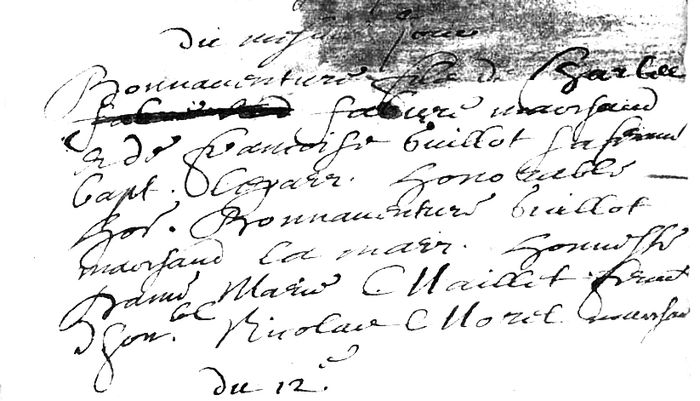 Du mesme Jour
Bonnaventure fils de Charles
fabure marchand
& de francoise Guillot sa femme
bapt. le parr. honorable
hoe. Bonnaventure Guillot
marchand la marr. honneste
dame Marie Maillet femme
d'hon.ble Nicolas Morel marchand
du 12.e